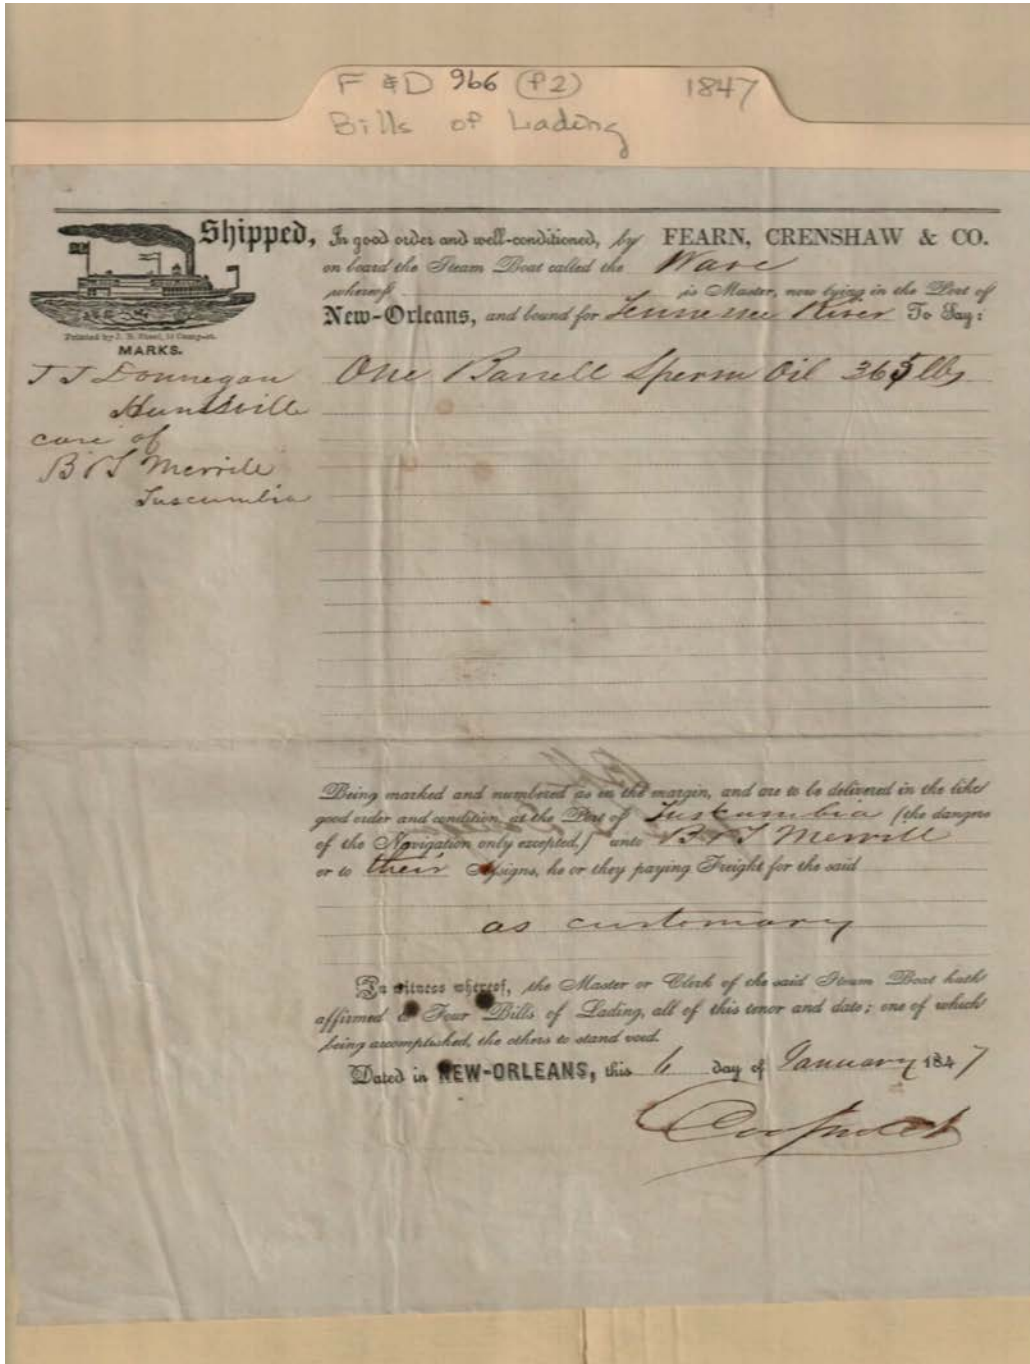 F & D 966 (P2) 1847
Bills of Lading
Shipped, In good order and well-conditioned, by FEARN, CRENSHAW & CO.
on board the Steam Boat called the Wave
whereof is Master, now lying in the Port of
New-Orleans, and bound for Tennessee River To Say:
MARKS.
T J Donnegan
Huntsville
care of
B & T Merrill
Tuscumbia
One Barrell Sperm Oil 365 lbs
Being marked and numbered as in the margin, and are to be delivered in the like
good order and condition, at the Port of Tuscumbia (the dangers
of the Navigation only excepted,) unto B & T Merrill
or to their Assigns, he or they paying Freight for the said
as customary
In witness whereof, the Master or Clerk of the said Steam Boat hath
affirmed to Four Bills of Lading, all of this tenor and date; one of which
being accomplished, the others to stand void.
Dated in NEW-ORLEANS, this 6 day of January 1847